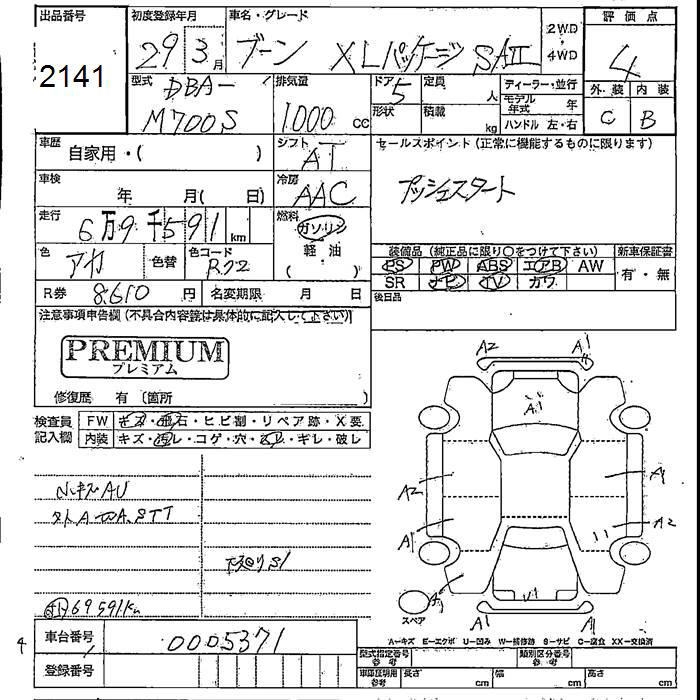 出品番号 初度登録年月 車名・グレード 評価点
2141 29 3月 ブーン XLパッケージ SAⅡ 2WD・4WD 4
型式 DBA- 排気量 ドア 5 定員 人 ディーラー・並行 外装 内装
M700S 1000 cc 形状 積載 kg モデル年式 年 C B
ハンドル 左・右
車歴 自家用・( ) シフト AT セールスポイント (正常に機能するものに限ります)
車検 年 月( 日) 冷房 AAC プッシュスタート
走行 6万9千591 km 燃料 ガソリン
軽油
( )
色 アカ 色替 色コード R72 装備品 (純正品に限り○をつけて下さい) 新車保証書
PS PW ABS エアB AW 有・無
R券 8610円 名変期限 月 日 SR ナビ TV カワ
後日品
注意事項申告欄(不具合内容等は具体的に記入して下さい)
PREMIUM
プレミアム
修復歴 有 (箇所 )
検査員記入欄 FW キズ・飛石・ヒビ割・リペア跡・X要
内装 キズ・汚レ・コゲ・穴・スレ・ギレ・破レ
A2 A1
A1
A2 A1
A1 A2
A1 A1
スペア
下廻りS1
69591km
A-キズ E-エクボ U-凹み W-補修跡 S-サビ C-腐食 XX-交換済
車台番号 0005371 型式指定番号 参考 類別区分番号 参考
登録番号 車庫証明用 参考 長さ cm 幅 cm 高さ cm